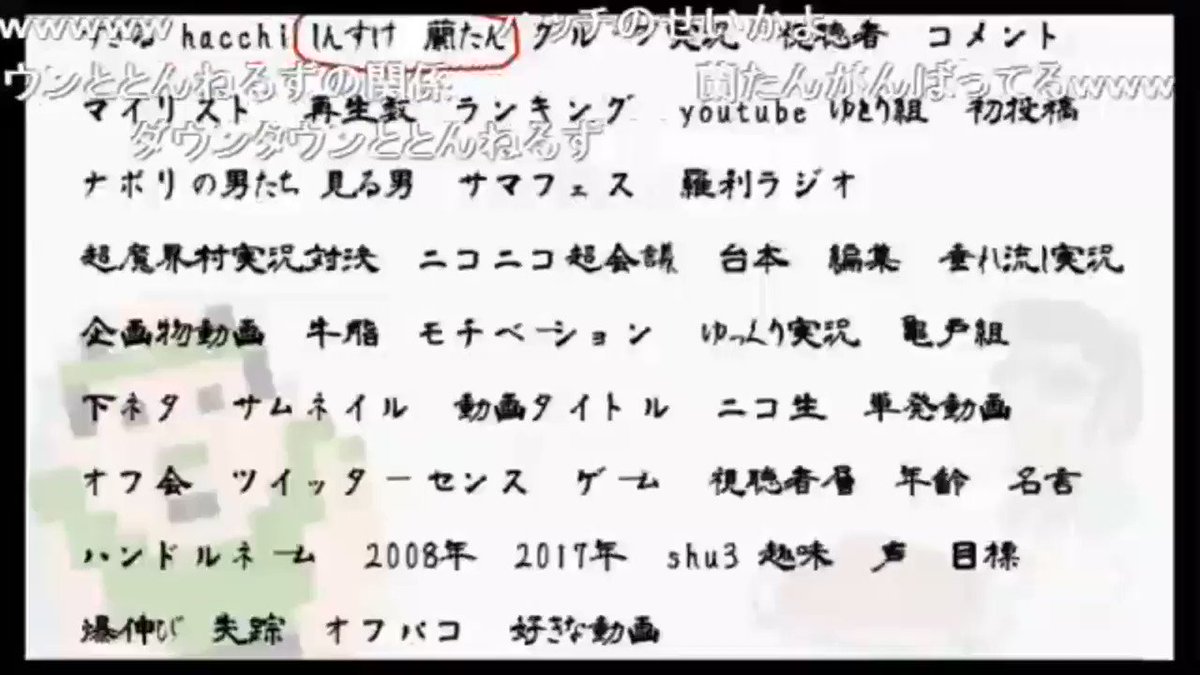 wwwwww
hacchi しんすけ 蘭たん 実況 視聴者 コメント
ッチのせいかよ
ウンととんねるずの関係 蘭たんがんばってるwww
マイリスト 再生数 ランキング youtube ゆとり組 初投稿
ダウンタウンととんねるず
ナポリの男たち 見る男 サマフェス 羅利ラジオ
超魔界村実況対決 ニコニコ超会議 台本 編集 垂れ流し実況
企画物動画 牛脂 モチベーション ゆっくり実況 亀戸組
下ネタ サムネイル 動画タイトル ニコ生 単発動画
オフ会 ツイッターセンス ゲーム 視聴者層 年齢 名言
ハンドルネーム 2008年 2017年 shu3 趣味 声 目標
爆伸び 失踪 オフパコ 好きな動画